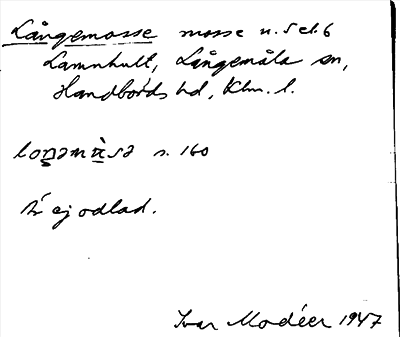 Långemosse mosse n. 5 el. 6
Lamnhult, Långemåla sn,
Handbörds hd, Klm. l.
s. 160
är ej odlad.
Ivar Modéer 1947